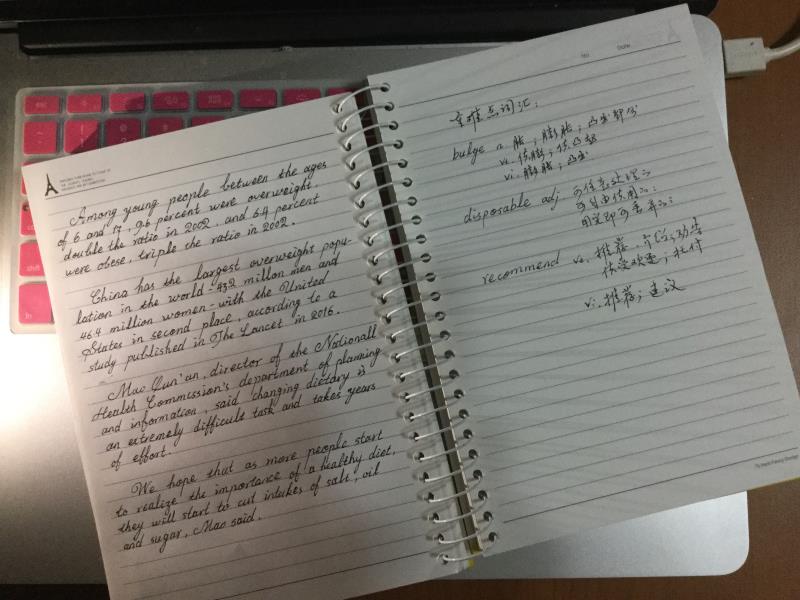 Among young people between the ages
of 6 and 17, 9.6 percent were overweight,
double the ratio in 2002, and 6.4 percent
were obese, triple the ratio in 2002.
China has the largest overweight popu-
lation in the world -43.2 millon men and
46.4 million women - with the United
States in second place, according to a
study published in The Lancet in 2016.
Mao Qun'an, director of the Nationall
Health Commission's department of planning
and information, said changing dietary is
an extremely difficult task and takes years
of effort.
We hope that as more people start
to realize the importance of a healthy diet,
they will start to cut intukes of salt, oil
and sugar, Mao said.
No. Date.
重难点词汇:
bulge n. 脂;膨胀;凸出部分
vt. 使膨;使凸起
vi. 膨胀;凸出
disposable adj. 可任意处理的
可自由使用的;
用完即可丢弃的;
recommend vt. 推荐,介绍;劝告
使受欢迎;托付
vi. 推荐;建议
esc
shift
fn